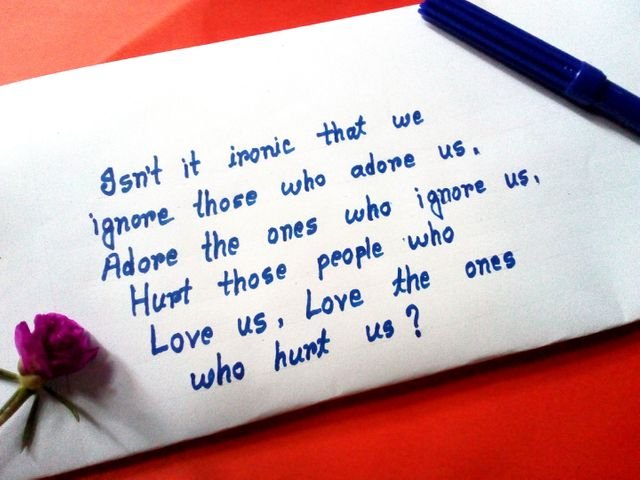 Isn't it ironic that we
ignore those who adore us.
Adore the ones who ignore us.
Hurt those people who
Love us, Love the ones
who hurt us?